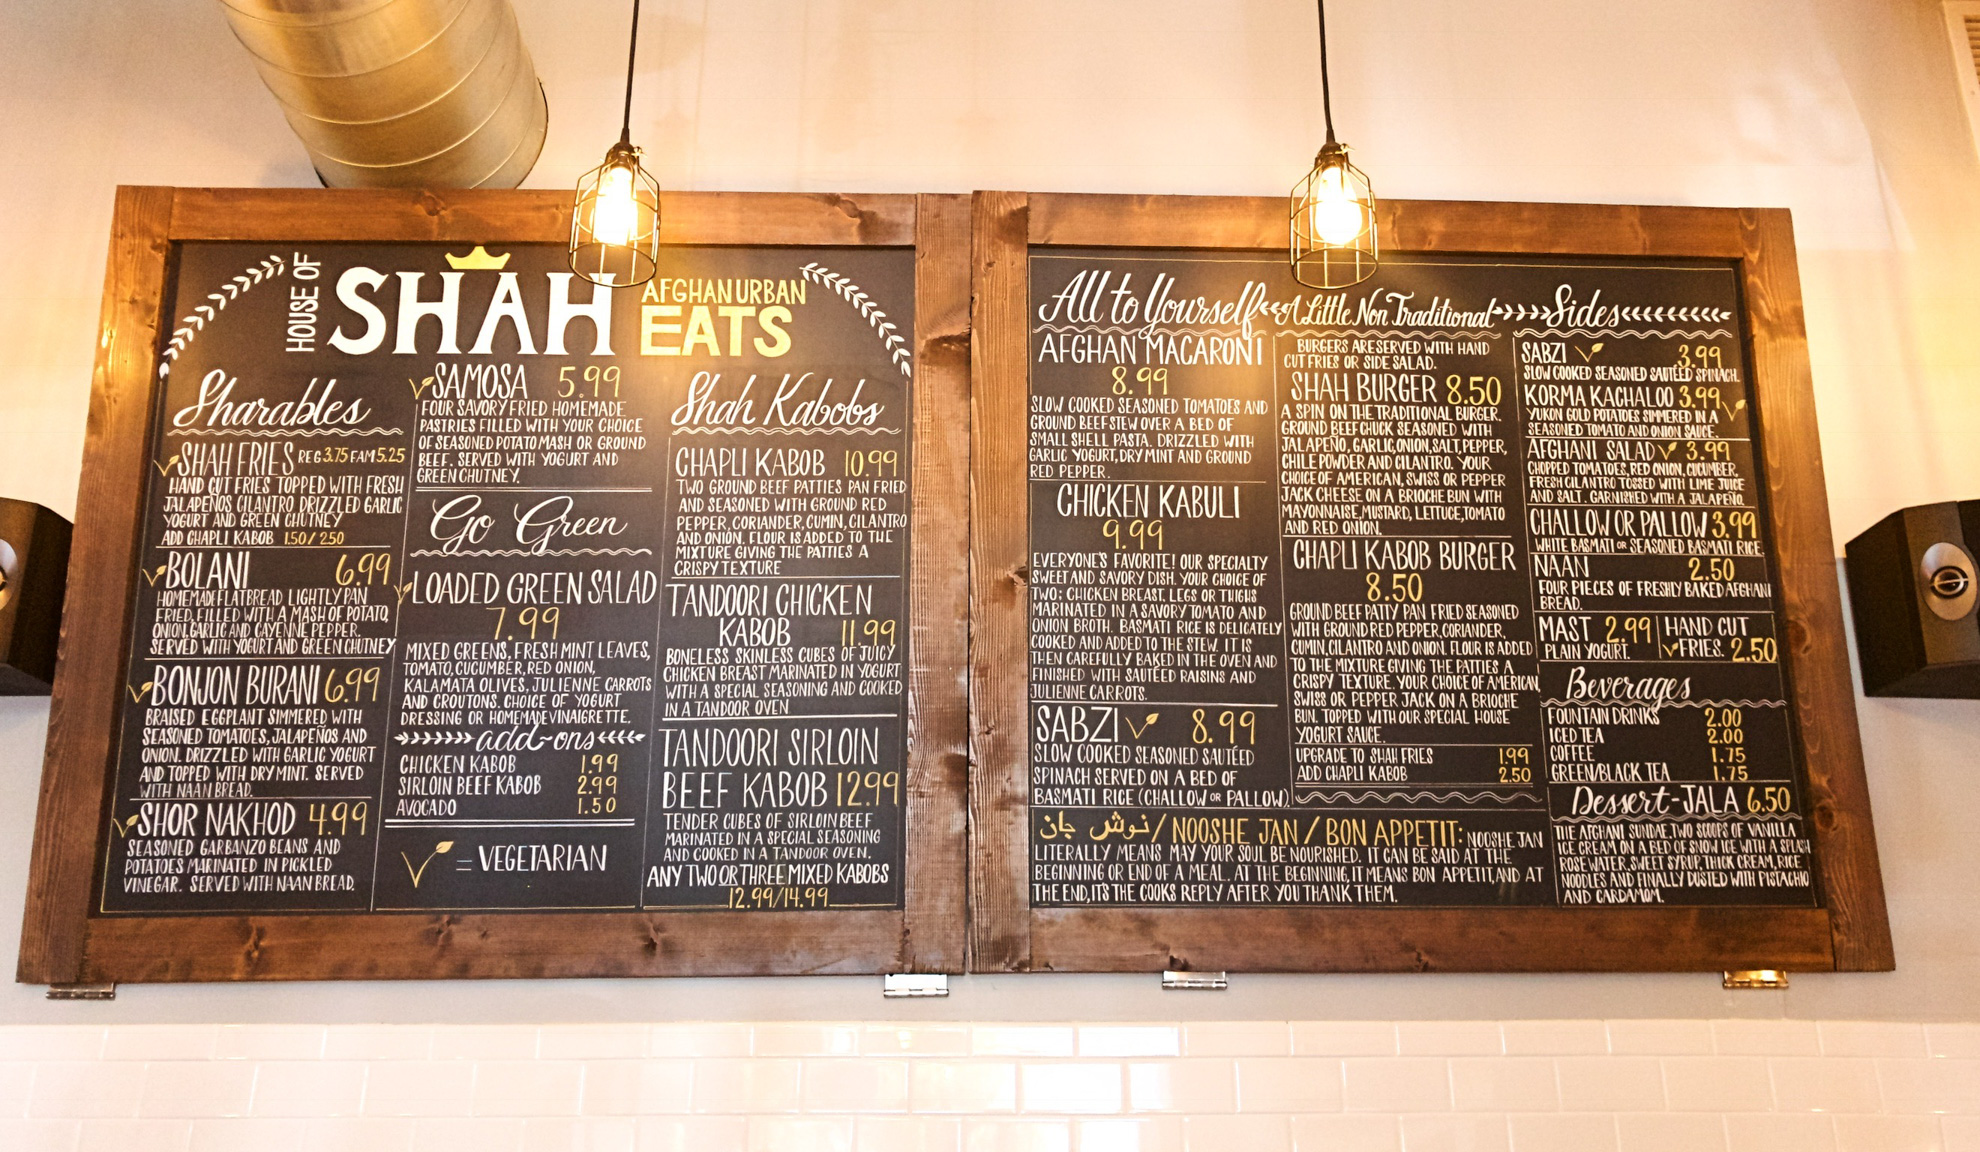 HOUSE OF
SHAH
AFGHAN URBAN
EATS
Sharables
SHAH FRIES REG 3.75 FAM 5.25
HAND CUT FRIES TOPPED WITH FRESH
JALAPEÑOS CILANTRO DRIZZLED GARLIC
YOGURT AND GREEN CHUTNEY
ADD CHAPLI KABOB 1.50/2.50
BOLANI 6.99
HOMEMADE FLATBREAD LIGHTLY PAN
FRIED, FILLED WITH A MASH OF POTATO,
ONION, GARLIC AND CAYENNE PEPPER.
SERVED WITH YOGURT AND GREEN CHUTNEY
BONJON BURANI 6.99
BRAISED EGGPLANT SIMMERED WITH
SEASONED TOMATOES, JALAPEÑOS AND
ONION. DRIZZLED WITH GARLIC YOGURT
AND TOPPED WITH DRY MINT. SERVED
WITH NAAN BREAD.
SHOR NAKHOD 4.99
SEASONED GARBANZO BEANS AND
POTATOES MARINATED IN PICKLED
VINEGAR. SERVED WITH NAAN BREAD.
SAMOSA 5.99
FOUR SAVORY FRIED HOMEMADE
PASTRIES FILLED WITH YOUR CHOICE
OF SEASONED POTATO MASH OR GROUND
BEEF. SERVED WITH YOGURT AND
GREEN CHUTNEY.
Go Green
LOADED GREEN SALAD
7.99
MIXED GREENS, FRESH MINT LEAVES,
TOMATO, CUCUMBER, RED ONION,
KALAMATA OLIVES, JULIENNE CARROTS
AND CROUTONS. CHOICE OF YOGURT
DRESSING OR HOMEMADE VINAIGRETTE.
add-ons
CHICKEN KABOB 1.99
SIRLOIN BEEF KABOB 2.99
AVOCADO 1.50
= VEGETARIAN
Shah Kabobs
CHAPLI KABOB 10.99
TWO GROUND BEEF PATTIES PAN FRIED
AND SEASONED WITH GROUND RED
PEPPER, CORIANDER, CUMIN, CILANTRO
AND ONION. FLOUR IS ADDED TO THE
MIXTURE GIVING THE PATTIES A
CRISPY TEXTURE
TANDOORI CHICKEN
KABOB 11.99
BONELESS SKINLESS CUBES OF JUICY
CHICKEN BREAST MARINATED IN YOGURT
WITH A SPECIAL SEASONING AND COOKED
IN A TANDOOR OVEN
TANDOORI SIRLOIN
BEEF KABOB 12.99
TENDER CUBES OF SIRLOIN BEEF
MARINATED IN A SPECIAL SEASONING
AND COOKED IN A TANDOOR OVEN.
ANY TWO OR THREE MIXED KABOBS
12.99/14.99
All to Yourself
AFGHAN MACARONI
8.99
SLOW COOKED SEASONED TOMATOES AND
GROUND BEEF STEW OVER A BED OF
SMALL SHELL PASTA. DRIZZLED WITH
GARLIC YOGURT, DRY MINT AND GROUND
RED PEPPER.
CHICKEN KABULI
9.99
EVERYONE'S FAVORITE! OUR SPECIALTY
SWEET AND SAVORY DISH. YOUR CHOICE OF
TWO: CHICKEN BREAST, LEGS OR THIGHS
MARINATED IN A SAVORY TOMATO AND
ONION BROTH. BASMATI RICE IS DELICATELY
COOKED AND ADDED TO THE STEW. IT IS
THEN CAREFULLY BAKED IN THE OVEN AND
FINISHED WITH SAUTÉED RAISINS AND
JULIENNE CARROTS.
SABZI 8.99
SLOW COOKED SEASONED SAUTÉED
SPINACH SERVED ON A BED OF
BASMATI RICE (CHALLOW OR PALLOW).
A Little Non Traditional
BURGERS ARE SERVED WITH HAND
CUT FRIES OR SIDE SALAD.
SHAH BURGER 8.50
A SPIN ON THE TRADITIONAL BURGER.
GROUND BEEF CHUCK SEASONED WITH
JALAPEÑO, GARLIC, ONION, SALT, PEPPER,
CHILE POWDER AND CILANTRO. YOUR
CHOICE OF AMERICAN, SWISS OR PEPPER
JACK CHEESE ON A BRIOCHE BUN WITH
MAYONNAISE, MUSTARD, LETTUCE, TOMATO
AND RED ONION.
CHAPLI KABOB BURGER
8.50
GROUND BEEF PATTY PAN FRIED SEASONED
WITH GROUND RED PEPPER, CORIANDER,
CUMIN, CILANTRO AND ONION. FLOUR IS ADDED
TO THE MIXTURE GIVING THE PATTIES A
CRISPY TEXTURE. YOUR CHOICE OF AMERICAN,
SWISS OR PEPPER JACK ON A BRIOCHE
BUN. TOPPED WITH OUR SPECIAL HOUSE
YOGURT SAUCE.
UPGRADE TO SHAH FRIES 1.99
ADD CHAPLI KABOB 2.50
نوش جان / NOOSHE JAN / BON APPETIT: NOOSHE JAN
LITERALLY MEANS MAY YOUR SOUL BE NOURISHED. IT CAN BE SAID AT THE
BEGINNING OR END OF A MEAL. AT THE BEGINNING, IT MEANS BON APPETIT, AND AT
THE END, IT'S THE COOKS REPLY AFTER YOU THANK THEM.
Sides
SABZI 3.99
SLOW COOKED SEASONED SAUTÉED SPINACH.
KORMA KACHALOO 3.99
YUKON GOLD POTATOES SIMMERED IN A
SEASONED TOMATO AND ONION SAUCE.
AFGHANI SALAD 3.99
CHOPPED TOMATOES, RED ONION, CUCUMBER,
FRESH CILANTRO TOSSED WITH LIME JUICE
AND SALT. GARNISHED WITH A JALAPEÑO.
CHALLOW OR PALLOW 3.99
WHITE BASMATI OR SEASONED BASMATI RICE.
NAAN 2.50
FOUR PIECES OF FRESHLY BAKED AFGHANI
BREAD.
MAST 2.99
PLAIN YOGURT.
HAND CUT
FRIES. 2.50
Beverages
FOUNTAIN DRINKS 2.00
ICED TEA 2.00
COFFEE 1.75
GREEN/BLACK TEA 1.75
Dessert-JALA 6.50
THE AFGHANI SUNDAE. TWO SCOOPS OF VANILLA
ICE CREAM ON A BED OF SNOW ICE WITH A SPLASH
ROSE WATER, SWEET SYRUP, THICK CREAM, RICE
NOODLES AND FINALLY DUSTED WITH PISTACHIO
AND CARDAMOM.